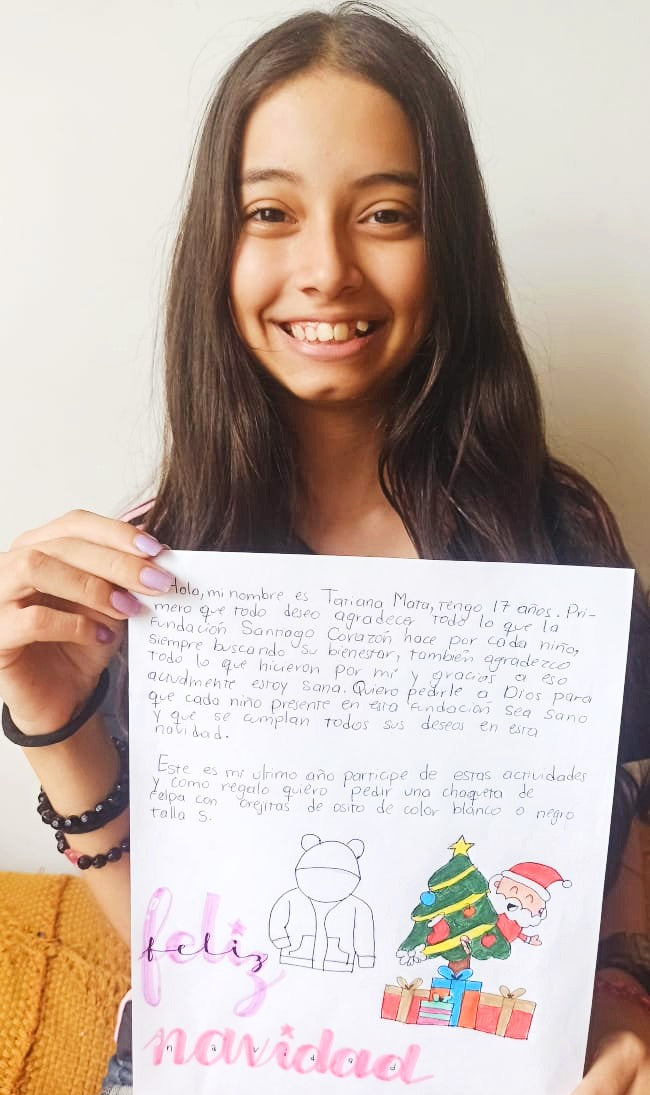 Hola, mi nombre es Tatiana Mora, tengo 17 años. Pri-
mero que todo deseo agradecer todo lo que la
Fundación Santiago Corazón hace por cada niño,
siempre buscando su bienestar, también agradezco
todo lo que hicieron por mí y gracias a eso
actualmente estoy sana. Quiero pedirle a Dios para
que cada niño presente en esta fundación sea sano
y que se cumplan todos sus deseos en esta
navidad.
Este es mi ultimo año participe de estas actividades
y como regalo quiero pedir una chaqueta de
felpa con orejitas de osito de color blanco o negro
talla S.
feliz
feliz
navidad
navidad